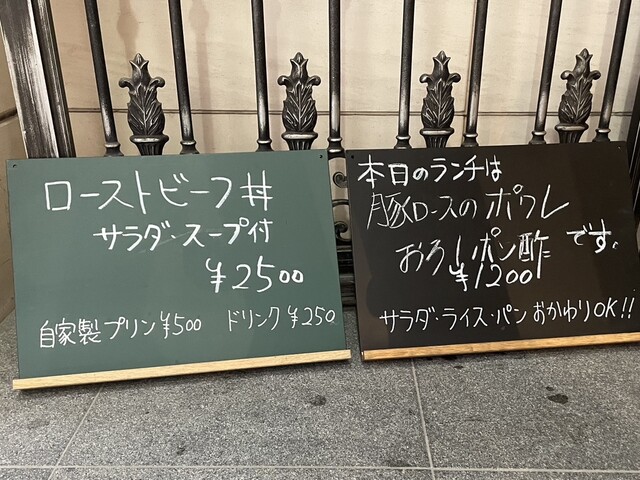 ローストビーフ丼
サラダ・スープ付
¥2500
自家製プリン¥500 ドリンク¥250
本日のランチは
豚ロースのポワレ
おろしポン酢です。
¥1200
サラダ・ライス・パンおかわりOK!!